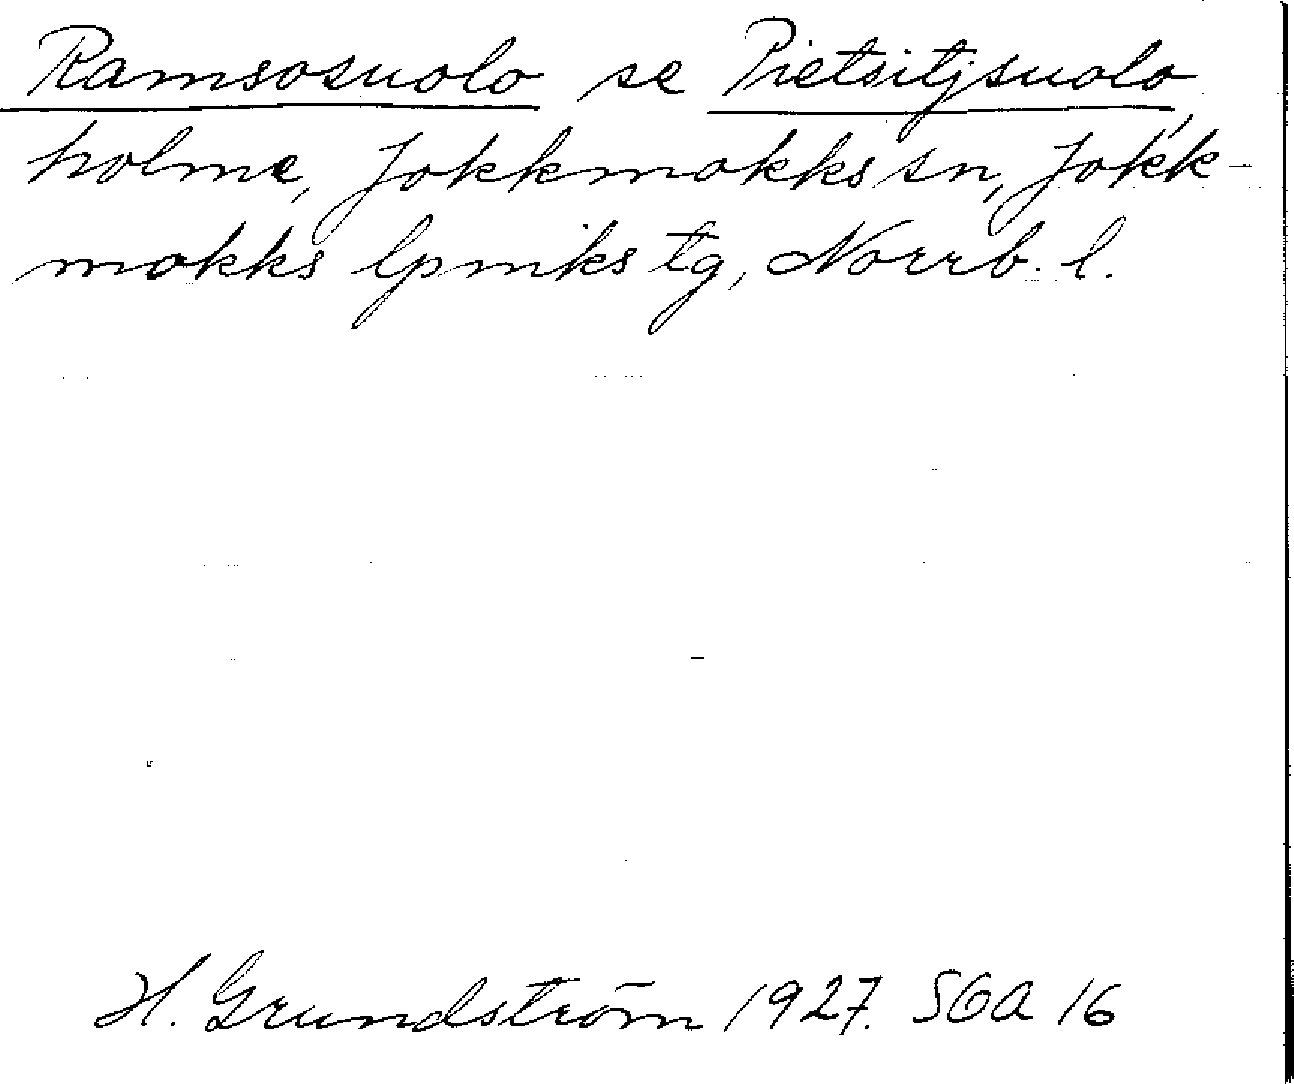 Ramsosuolo se Pietsitjsuolo,
holme, Jokkmokks sn, Jokk-
mokks lpmks tg, Norrb. l.
H. Grundström 1927. SOA 16